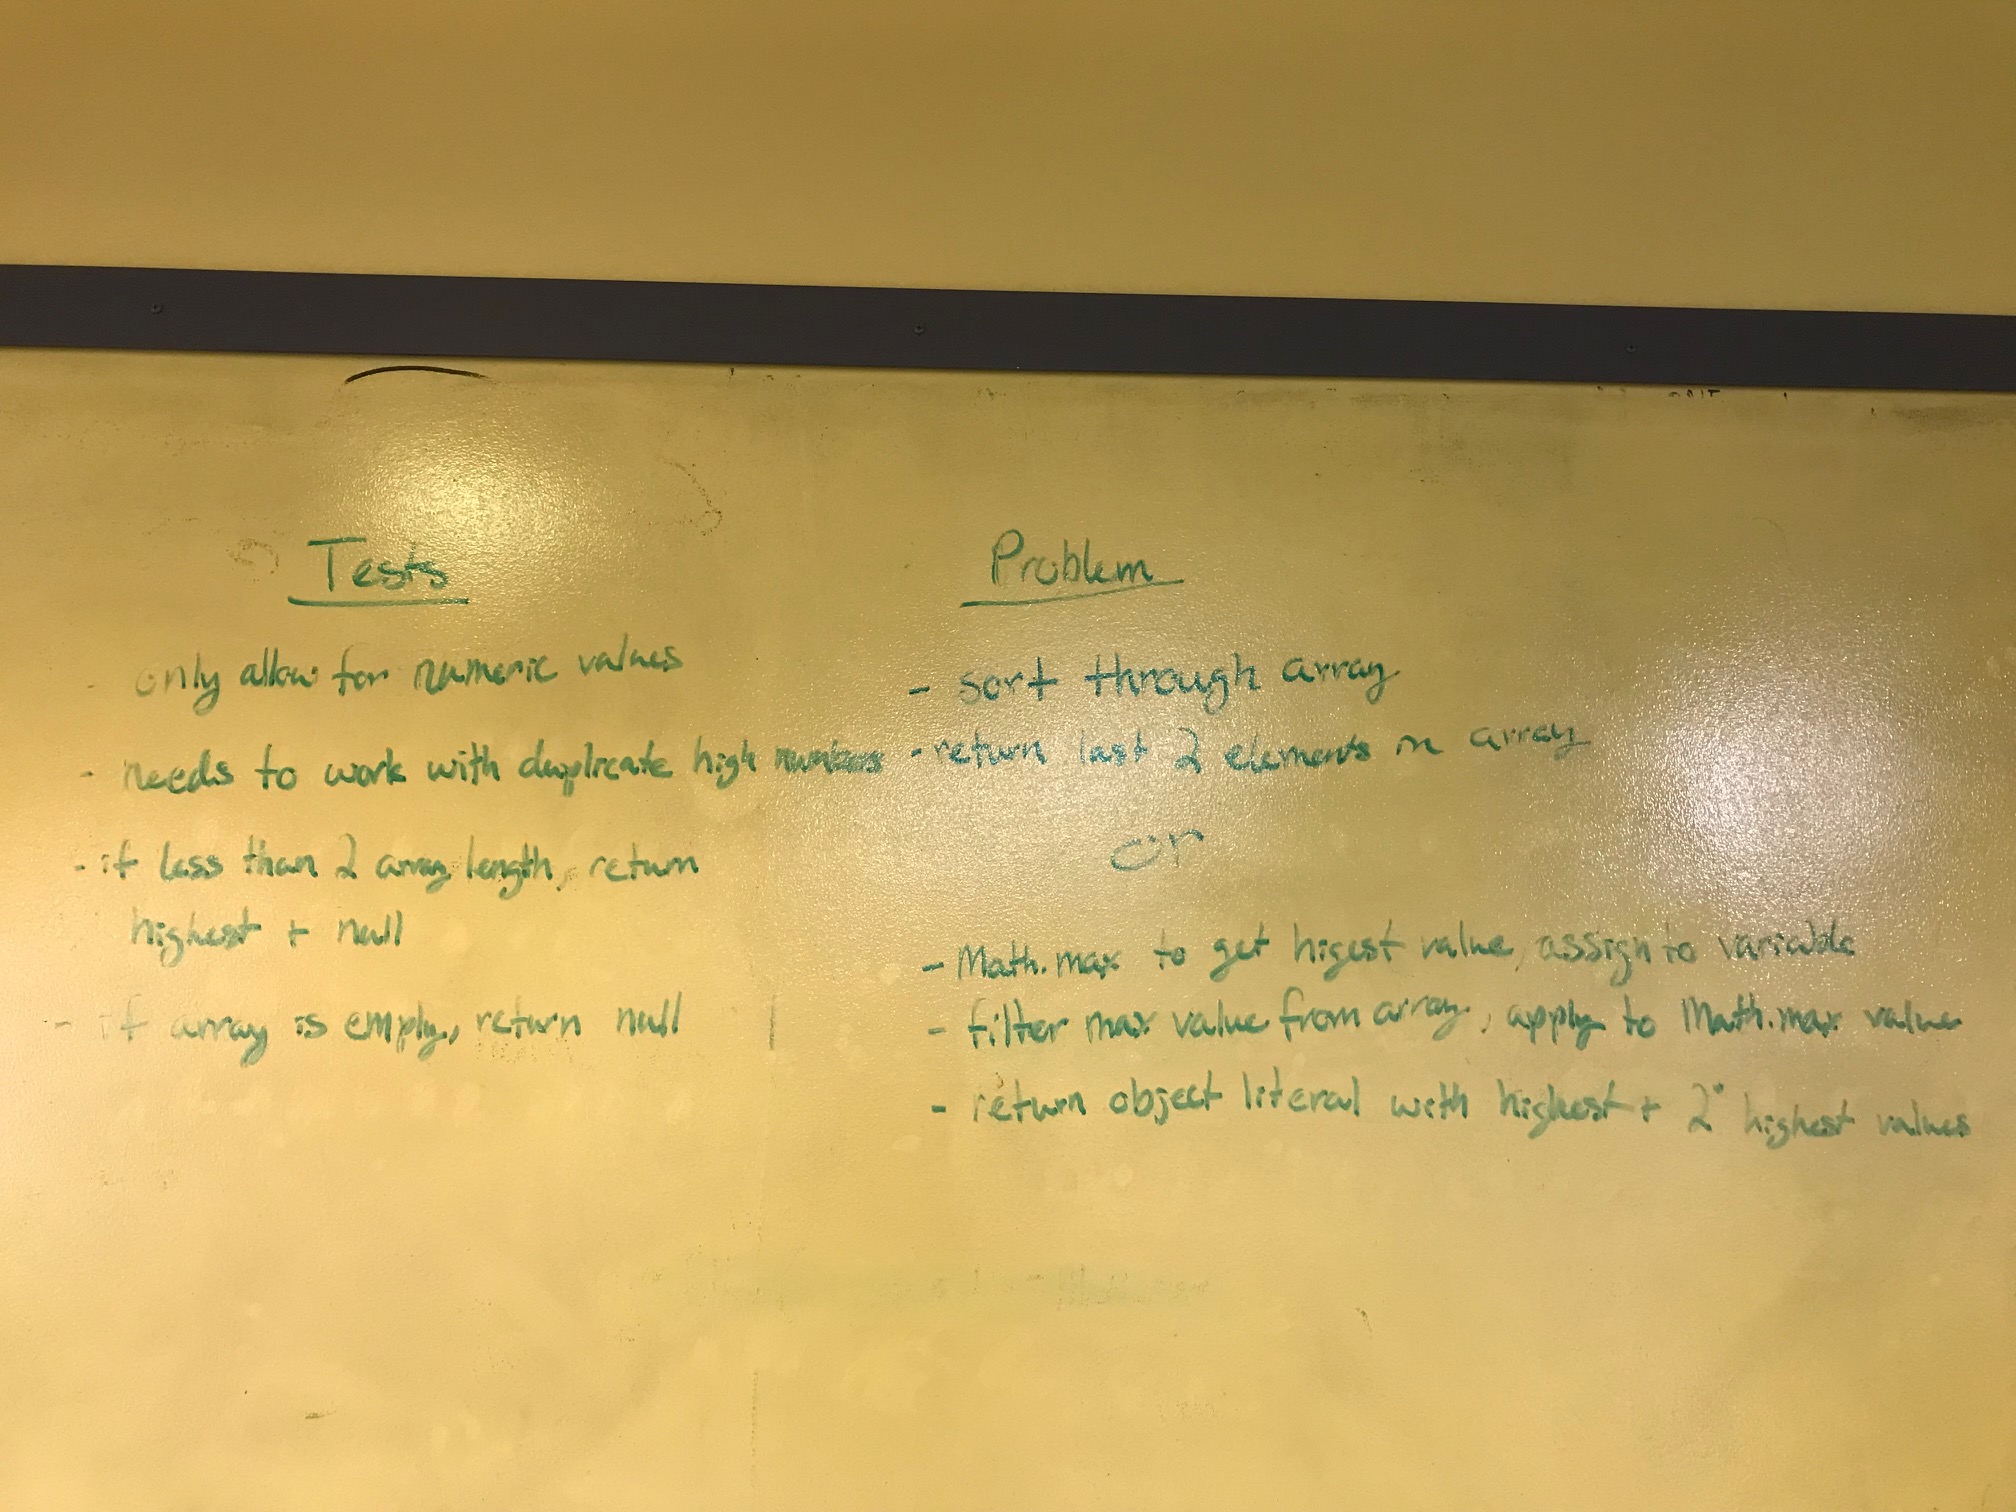 Tests
- only allow for numeric values
- needs to work with duplicate high numbers
- if less than 2 array length, return
highest + null
- if array is empty, return null
Problem
- sort through array
- return last 2 elements in array
or
- Math.max to get higest value, assign to variable
- filter max value from array, apply to Math.max value
- return object literal with highest + 2° highest values